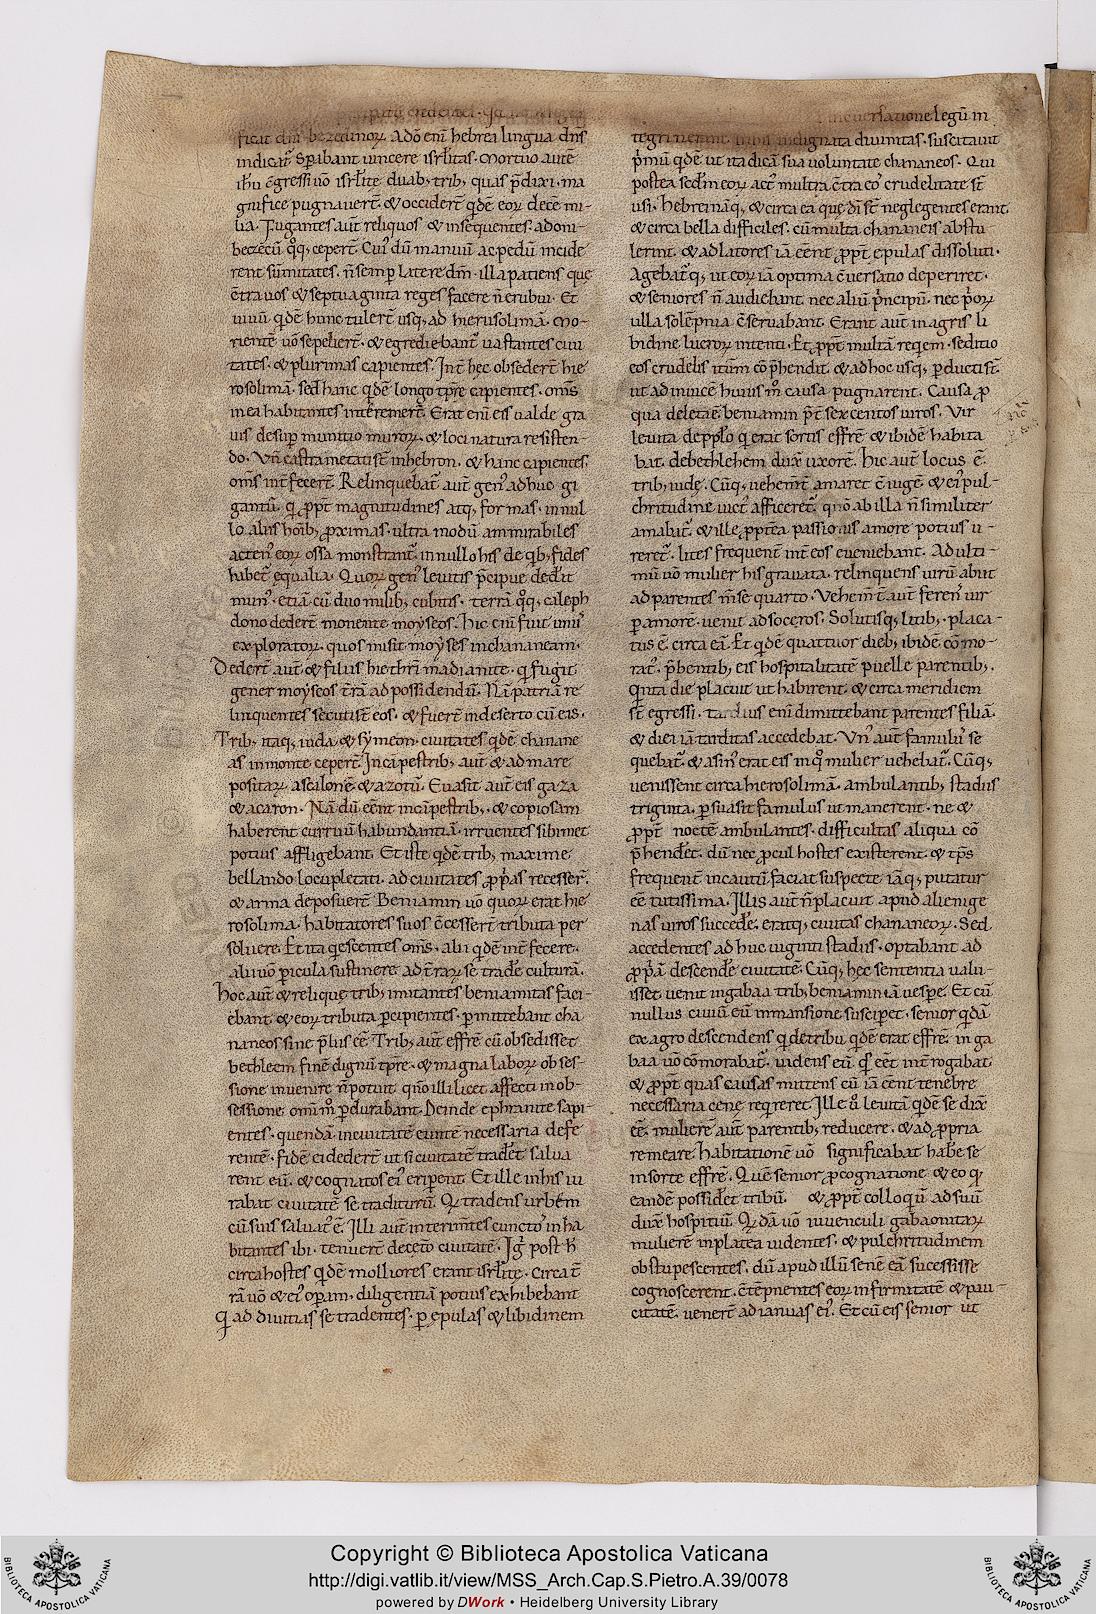 ficat dni bezecenorꝝ. Adō eni hebrea lingua dns
indicat̄. Sperabant uincere isrl̄itas. Mortuo autē
ih̄u c̄gressi uō isrl̄itę duab; trib; quas p̄dixi. ma
gnifice pugnauer̄t. & occider̄t q̇dē eoꝝ decē mi-
lia. Fugantes aut̄ reliquos & insequentes. adoni-
bezecū q̇q; ceper̄t. Cui' dū manuū ac pedū incide
rent sūmitates. n̄ semp̄ latere dm̄. illa patiens quę
c̄tra uos & septuaginta reges facere n̄ erubui. Et
uiuū q̇dē hunc tuler̄t usq; ad hierusolimā. Mo-
rientē uō sepelier̄t. & egrediebant̄ uastantes ciui
tates. & plurimas capientes. Int̄ hęc obseder̄t hie
rosolimā. sed hanc q̇dē longo tp̄re capientes. om̄s
in ea habitantes interemer̄t. Erat eni eis ualde gra
uis desup̄ munitio muroꝝ. & loci natura resisten-
do. Vn̄ castra metati st̄ in hebron. & hanc capientes.
om̄s int̄fecer̄t. Relinquebat̄ aut̄ gen' adhuc gi
gantū. q̇ ꝓpt̄ magnitudines atq; formas. in nul
lo aliis hoīb; ꝓximas. ultra modū ammirabiles
acten' eoꝝ ossa monstrant̄. in nullo his de q̇b; fides
habet̄ equalia. Quoꝝ gen' leuitis p̄cipue deder̄t
mun'. etiā cū duo milib; cubitis. terrā q̇q; caleph
dono deder̄t monente moyseos. hic eni fuit unus
exploratoꝝ. quos misit moyses in chananeam.
Deder̄t aut̄ & filiis hiethri madianite. q̇ fugit
gener moyseos t̄rā ad possidendū. Nā patriā re
linquentes secuti st̄ eos. & fuer̄t in deserto cū eis.
Trib; itaq; iuda & symeon. ciuitates q̇dē chanane
as in monte ceper̄t. In cāpestrib; aut̄ & ad mare
positaꝝ ascalonē & azotū. Euasit aut̄ eis gaza
& acaron. Nā dū eēnt in cāpestrib; & copiosam
haberent curruū habundantiā. irruentes sibimet
potius affligebant. Et iste q̇dē trib; maxime
bellando locupletati. ad ciuitates ꝓp̄as recesser̄.
& arma deposuer̄t. Beniamin uō quoꝝ erat hie
rosolima. habitatores suos c̄cesser̄t tributa per
soluere. Et ita q̇escentes om̄s. alii q̇dē int̄fecere.
alii uō p̄icula sustinere. ad t̄raꝝ se trader̄ culturā.
Hoc aut̄ & relique trib; imitantes beniamitas faci-
ebant. & eoꝝ tributa p̄cipientes. p̄mittebant cha
naneos sine p̄lus eē. Trib; aut̄ effrē cū obsedisset
bethleem finē dignū tp̄re. & magna laboꝝ obses-
sione inuenire n̄ potuit. qn̄o illi licet affecti in ob-
sessione om̄i m̄ p̄durabant. Deinde ephranite sapi-
entes. quendā in ciuitatē ciuitē necessaria defe
rentē. fidē ei deder̄t ut si ciuitatē trader̄t salua
rent eū. & cognatos ei' eriperent. Et ille in his iu
rabat ciuitatē se traditurū. Qꝝ tradens urbem
cū suis saluat' ē. Illi aut̄ interim̄tes cuncto' inha
bitantes ibi. tenuer̄t decet̄o ciuitatē. Iḡ post h̄
circa hostes q̇dē molliores erant isrl̄ite. circa t̄
rā uō & ei' opam. diligentiā potius exhibebant
Q̇ ad diuitias se tradentes. p̄ ępulas & libidinem
uersatione legū in
tegri
p̄mū q̇dē ut ita dicā sua uoluntate chananeos. Qui
postea sedm̄ eoꝝ act' multa c̄tra eo' crudelitate st̄
usi. Hebremāq; & circa ea que di st̄ neglegentes erant
& circa bella difficiles. cū multa chananeis abstu-
lerint. & ad latores iā eēnt ꝓpt̄ epulas dissoluti.
Agebat̄q; ut eoꝝ iā optima c̄uersatio deperiret.
& seniores n̄ audiebant. nec aliū p̄ncipū. nec p̄oꝝ
ulla solēpnia c̄seruabant. Erant aut̄ in agris li
bidine lucroꝝ intenti. Et ꝓpt̄ multā req̇em. seditio
eos crudelis it̄um cōp̄hendit. & ad hoc usq; p̄ducti st̄.
ut adinuicē huius m̄ causa pugnarent. Causa ꝓ
qua deletaē beniamin p̄t sexcentos uiros. Vir
leuita depplo q̇ erat sortis effrē & ibidē habita
bat. de bethlehem dux uxorē. hic aut̄ locus ē.
trib; iudę. Cūq; uehemt̄ amaret c̄iugē & ei' pul-
chritudine uict' afficeret̄. qn̄o ab illa n̄ similiter
amabat̄. & ille ꝓpt̄ta passionis amore potius u-
reret̄. lites frequent̄ int̄ eos eueniebant. Ad ulti-
mū uō mulier his grauata. relinquens uirū abiit
ad parentes m̄se quarto. Vehem̄t̄ aut̄ feren' uir
p̄ amore. uenit ad soceros. Solutisq; litib; placa-
tus ē. circa eā. Et q̇dē quattuor dieb; ibidē cōmo-
rat̄. p̄bentib; eis hospitalitatē puelle parentib;.
Q̇nta die placuit ut habirent. & circa meridiem
st̄ egressi. tardius eni dimittebant parentes filiā.
& diei iā tarditas accedebat. Vn' aut̄ famulus se
quebat̄. & asin' erat eis in q̇ mulier uehebat̄. Cūq;
uenissent circa hierosolimā. ambulantib; stadiis
triginta. p̄suasit famulus ut manerent. ne &
ꝓpt̄ noctē ambulantes. difficultas aliqua cō
p̄henderet. dū nec ꝓcul hostes existerent. & tp̄s
frequent̄ incautū faciat suspecte iāq; putatur
eē tutissima. Illis aut̄ n̄ placuit apud alienige
nas uiros succeder̄. eratq; ciuitas chananeoꝝ. Sed
accedentes adhuc uiginti stadiis. optabant ad
ꝓp̄ā descender̄ ciuitatē. Cūq; hęc sententia ualu-
isset. uenit in gabaa trib; beniamin iā uespe. Et cū
nullus ciuiū eū in mansione susciperet. senior q̇dā
ex agro descendens q̇ de tribu q̇dē erat effrē. in ga
baa uō cōmorabat̄. uidens eū q̇s eēt int̄rogabat
& ꝓpt̄ quas causas mittens cū iā eēnt tenebre
necessaria cenę req̇reret. Ille ū leuitā q̇dē se dix
eē. mulierē aut̄ parentib; reducere. & ad ꝓpria
remeare. Habitationē uō significabat haber̄ se
in sorte effrē. Quē senior ꝓ cognatione. & eo q̇
eandē possider̄t tribū. & ꝓpt̄ colloq̇ū ad suū
dux hospitiū. Qꝝdā uō iuuenculi gabaonitaꝝ
mulierē in platea uidentes. & pulchritudinem
obstupescentes. dū apud illū senē eā sucessisse
cognoscerent. c̄tēpnentes eoꝝ infirmitatē & pau-
citatē. uener̄t ad ianuas ei'. Et cū eis senior ut
Copyright © Biblioteca Apostolica Vaticana
http://digi.vatlib.it/view/MSS_Arch.Cap.S.Pietro.A.39/0078
powered by DWork • Heidelberg University Library
BIBLIOTECA APOSTOLICA VATICANA
BIBLIOTECA APOSTOLICA VATICANA